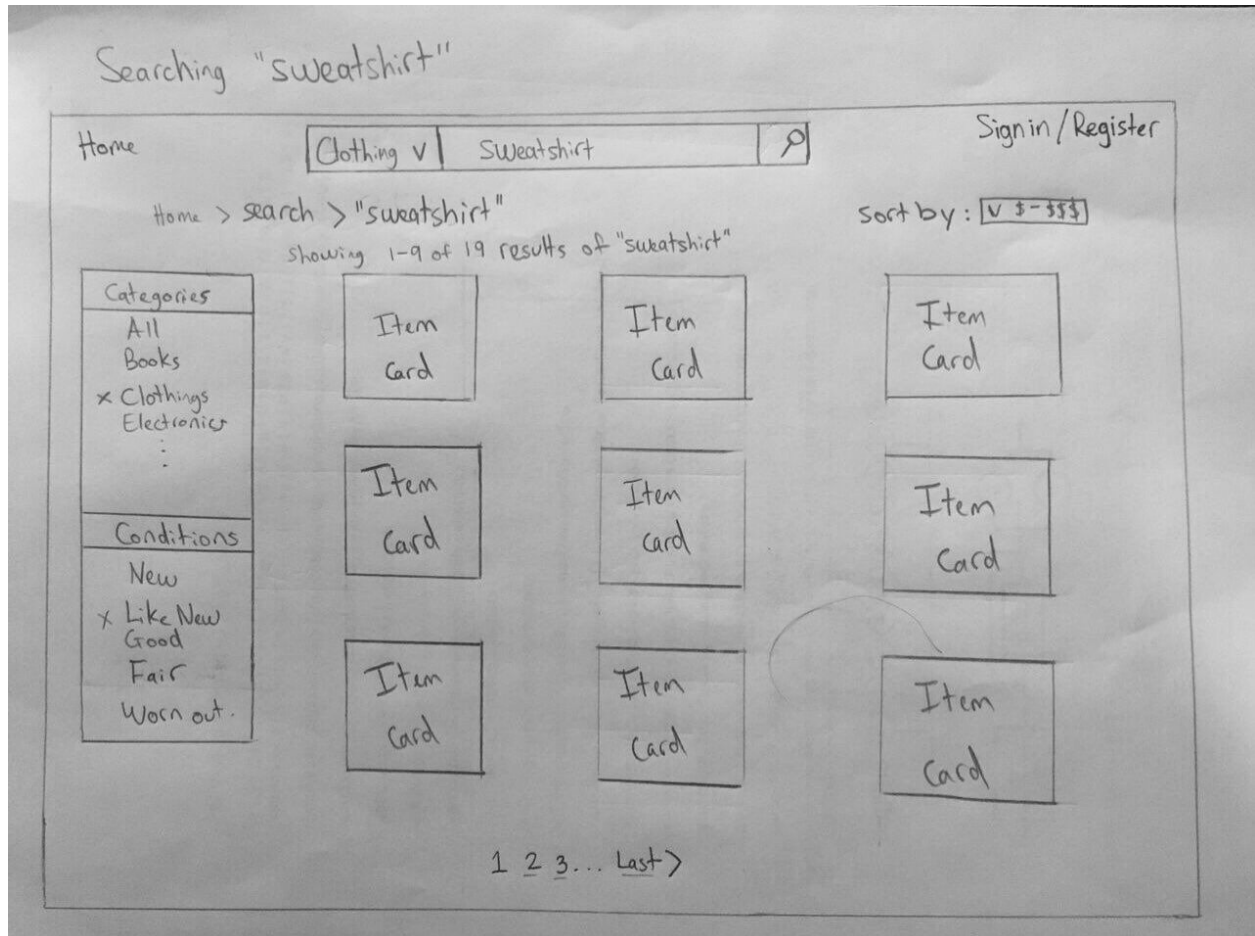 Searching "sweatshirt"
Home
Clothing v
Sweatshirt
Sign in / Register
Home > search > "sweatshirt"
Sort by: v $-$$$
Showing 1-9 of 19 results of "sweatshirt"
Categories
All
Books
x Clothings
Electronics
Conditions
New
x Like New
Good
Fair
Worn out.
Item
Card
Item
Card
Item
Card
Item
Card
Item
Card
Item
Card
Item
Card
Item
Card
Item
Card
1 2 3... Last >